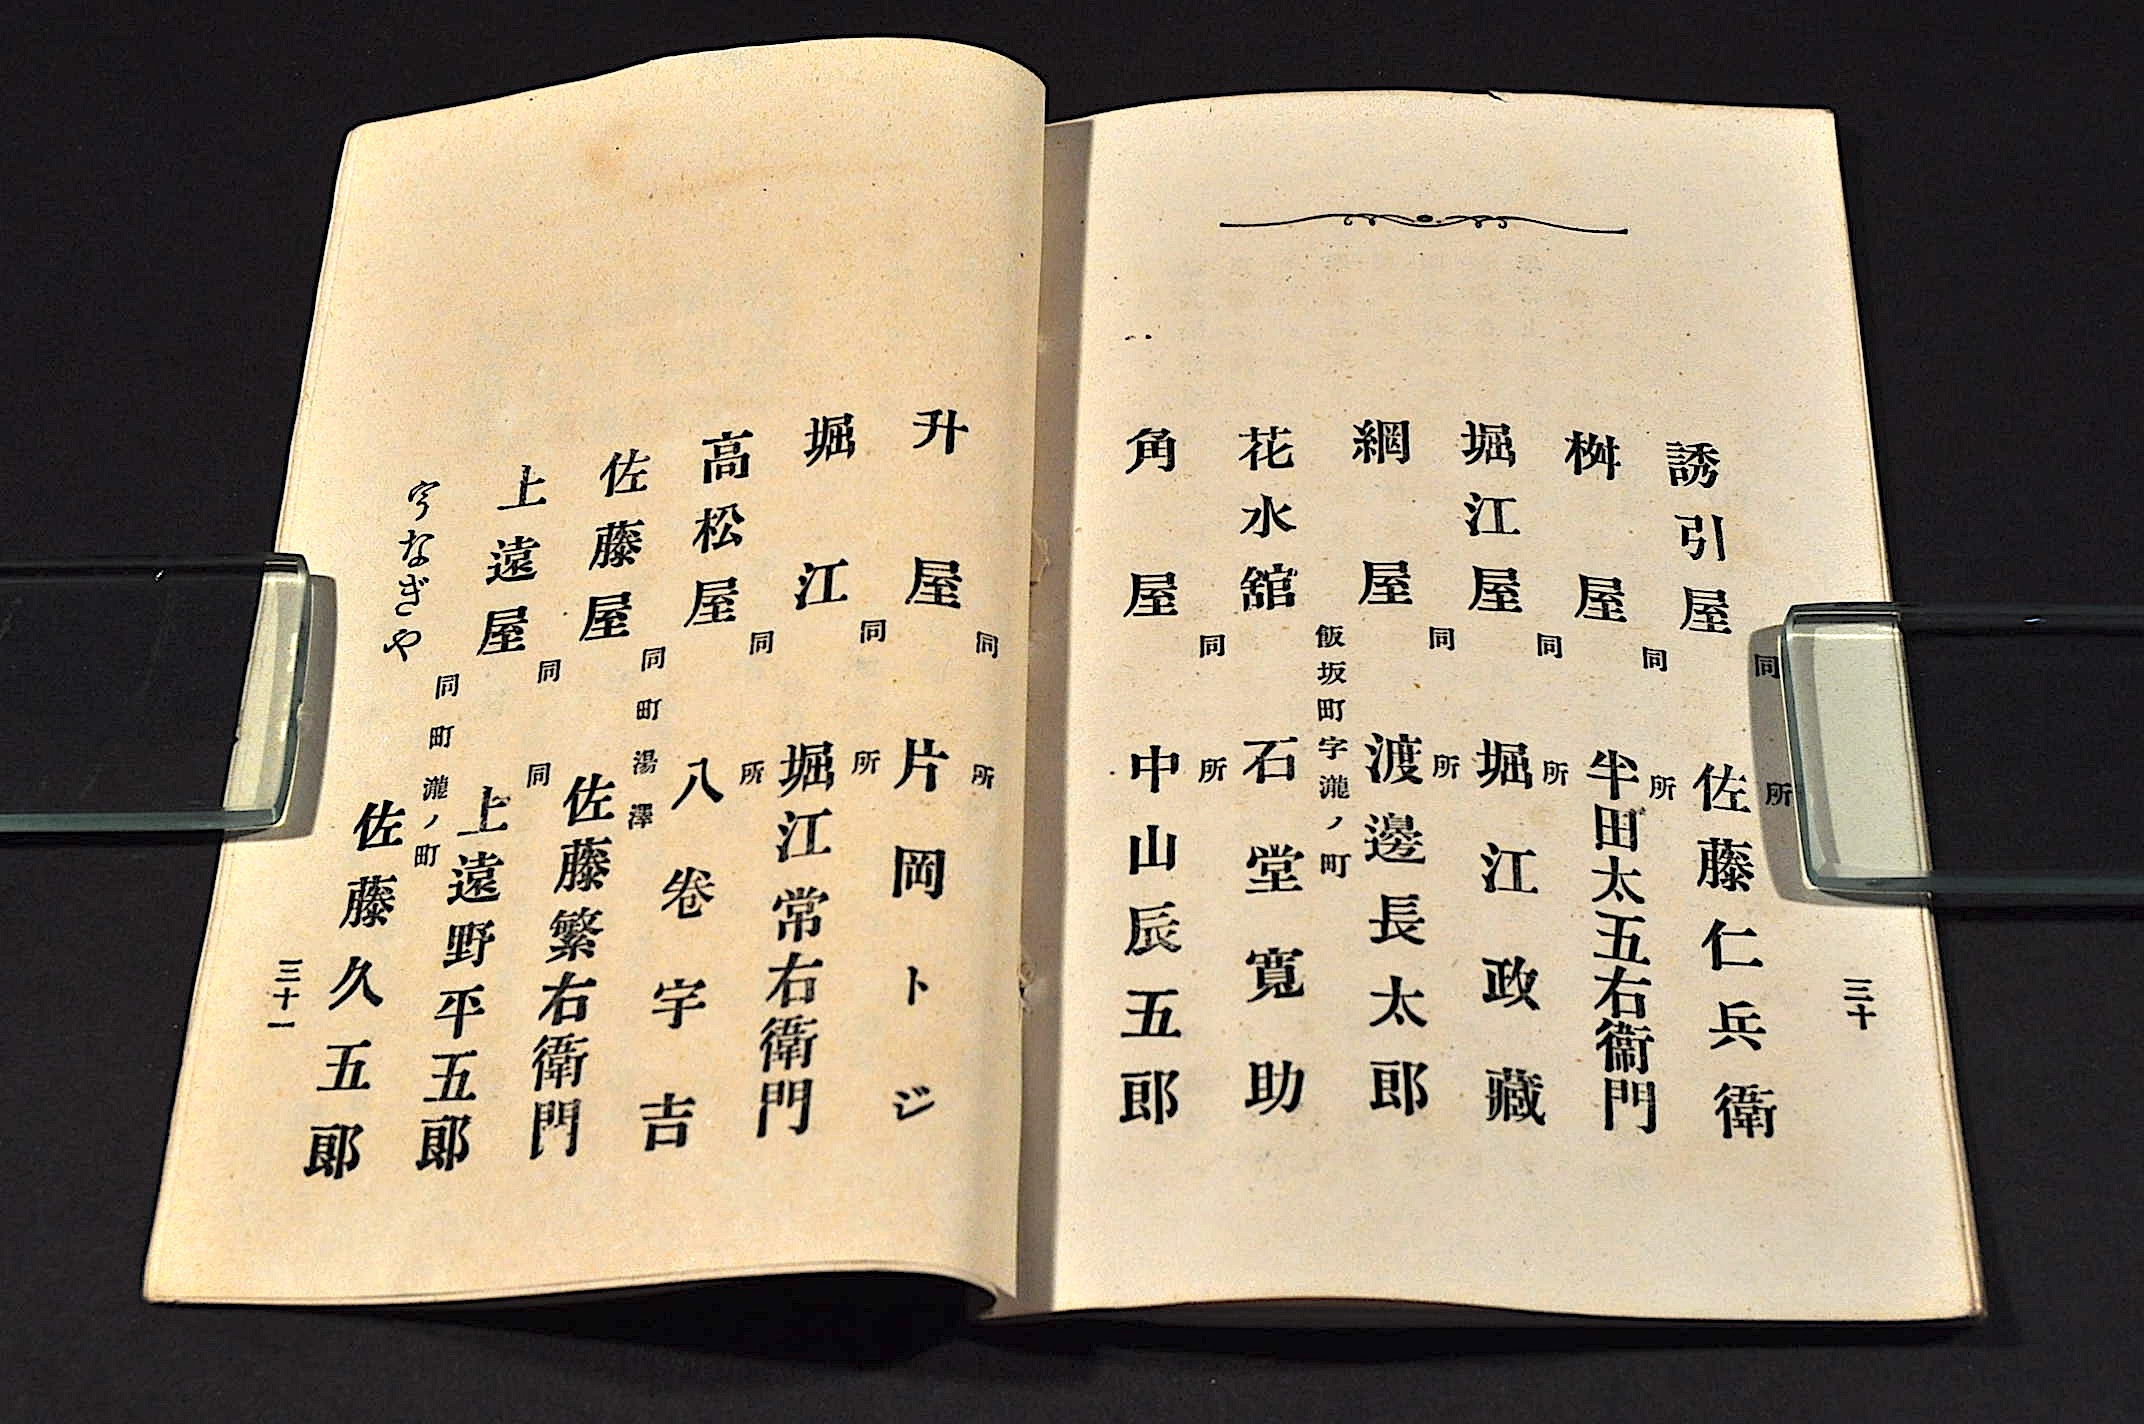 三十
同所
誘引屋 佐藤仁兵衛
同所
桝屋 半田太五右衞門
同所
堀江屋 堀江政藏
同所
網屋 渡邊長太郎
飯坂町字瀧ノ町
花水舘 石堂寬助
同所
角屋 中山辰五郎
同所
升屋 片岡トジ
同所
堀江 堀江常右衛門
同所
高松屋 八卷宇吉
同町湯澤
佐藤屋 佐藤繁右衛門
同同
上遠屋 上遠野平五郎
同町瀧ノ町
うなぎや 佐藤久五郎
三十一